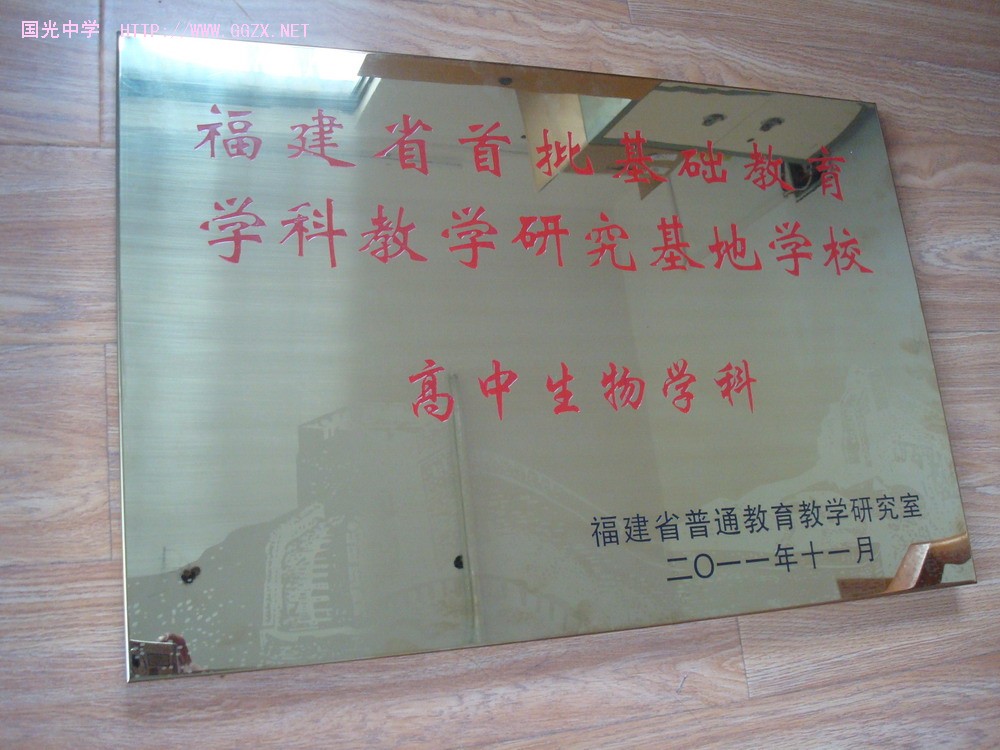 国光中学 HTTP://WWW.GGZX.NET
福建省首批基础教育
学科教学研究基地学校
高中生物学科
福建省普通教育教学研究室
二〇一一年十一月